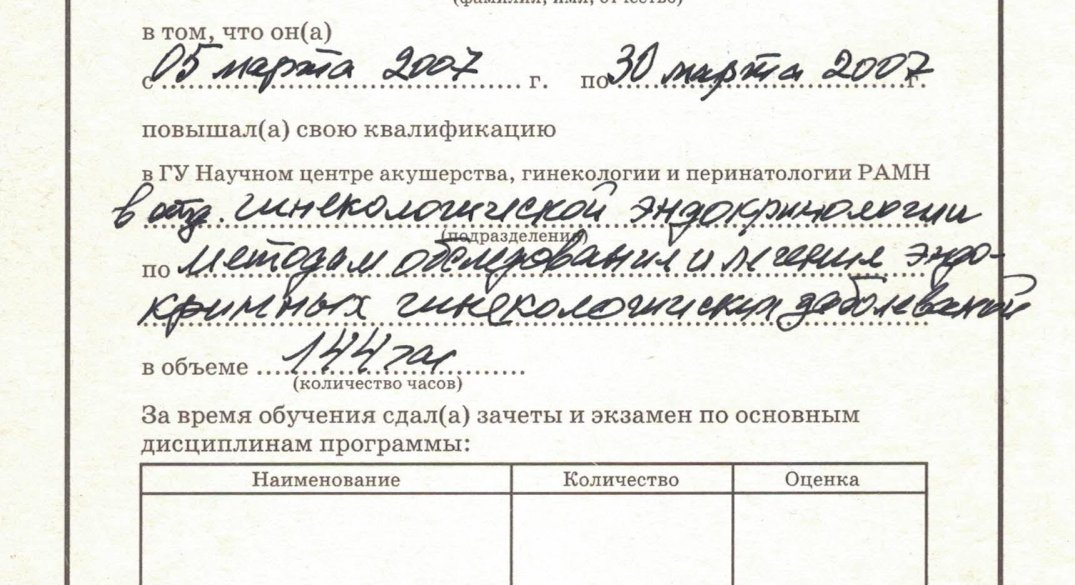 (фамилия, имя, отчество)
в том, что он(а)
с 05 марта 2007 г. по 30 марта 2007 г.
повышал(а) свою квалификацию
в ГУ Научном центре акушерства, гинекологии и перинатологии РАМН
в отд. гинекологической эндокринологии
(подразделении)
по методам обследования и лечения эндо-
кринных гинекологических заболеваний
в объеме 144 час
(количество часов)
За время обучения сдал(а) зачеты и экзамен по основным
дисциплинам программы:
Наименование Количество Оценка